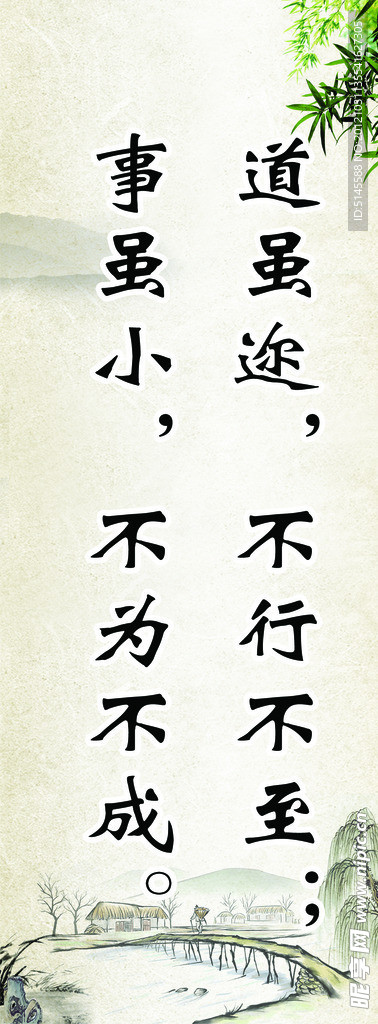 道虽迩，不行不至；
事虽小，不为不成。
ID:5145588 NO:20121031135541627305
昵享网 www.nipic.cn